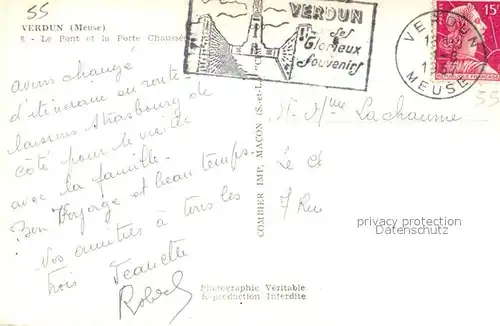 55
VERDUN (Meuse)
8 - Le Pont et la Porte Chaussée
VERDUN
Ses
Glorieux
Souvenirs
VERDUN
MEUSE
15F
55
avons changé
d'itinéraire en route
laissons Strasbourg de
côté pour
avec la famille.
Bon Voyage et beau temps.
Nos amitiés à tous les
trois Jeanette
Robert
COMBIER IMP. MACON (S.-et-L.) "C
M. Mme Lachaume
Le
7 Rue
privacy protection
www.ansichtskartenversand.com
Photographie Véritable
Reproduction Interdite